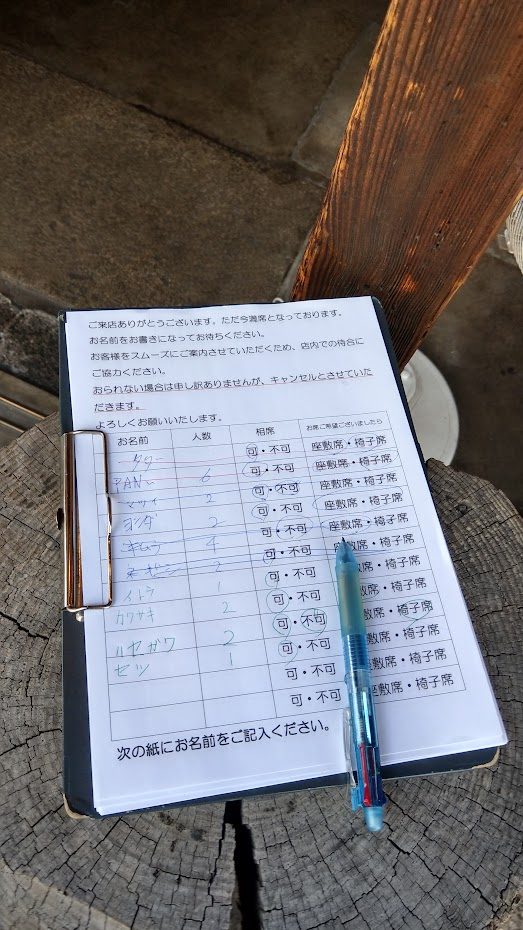 ご来店ありがとうございます。ただ今満席となっております。
お名前をお書きになってお待ちください。
お客様をスムーズにご案内させていただくため、店内での待合に
ご協力ください。
おられない場合は申し訳ありませんが、キャンセルとさせていた
だきます。
よろしくお願いいたします。
お名前 人数 相席 お席ご希望ございましたら
可・不可 座敷席・椅子席
6 可・不可 座敷席・椅子席
マツイ 2 可・不可 座敷席・椅子席
ヨシダ 2 可・不可 座敷席・椅子席
キムラ 4 可・不可 座敷席・椅子席
2 可・不可 座敷席・椅子席
イトウ 1 可・不可 座敷席・椅子席
カワサキ 2 可・不可 座敷席・椅子席
ハセガワ 2 可・不可 座敷席・椅子席
1 可・不可 座敷席・椅子席
可・不可 座敷席・椅子席
次の紙にお名前をご記入ください。